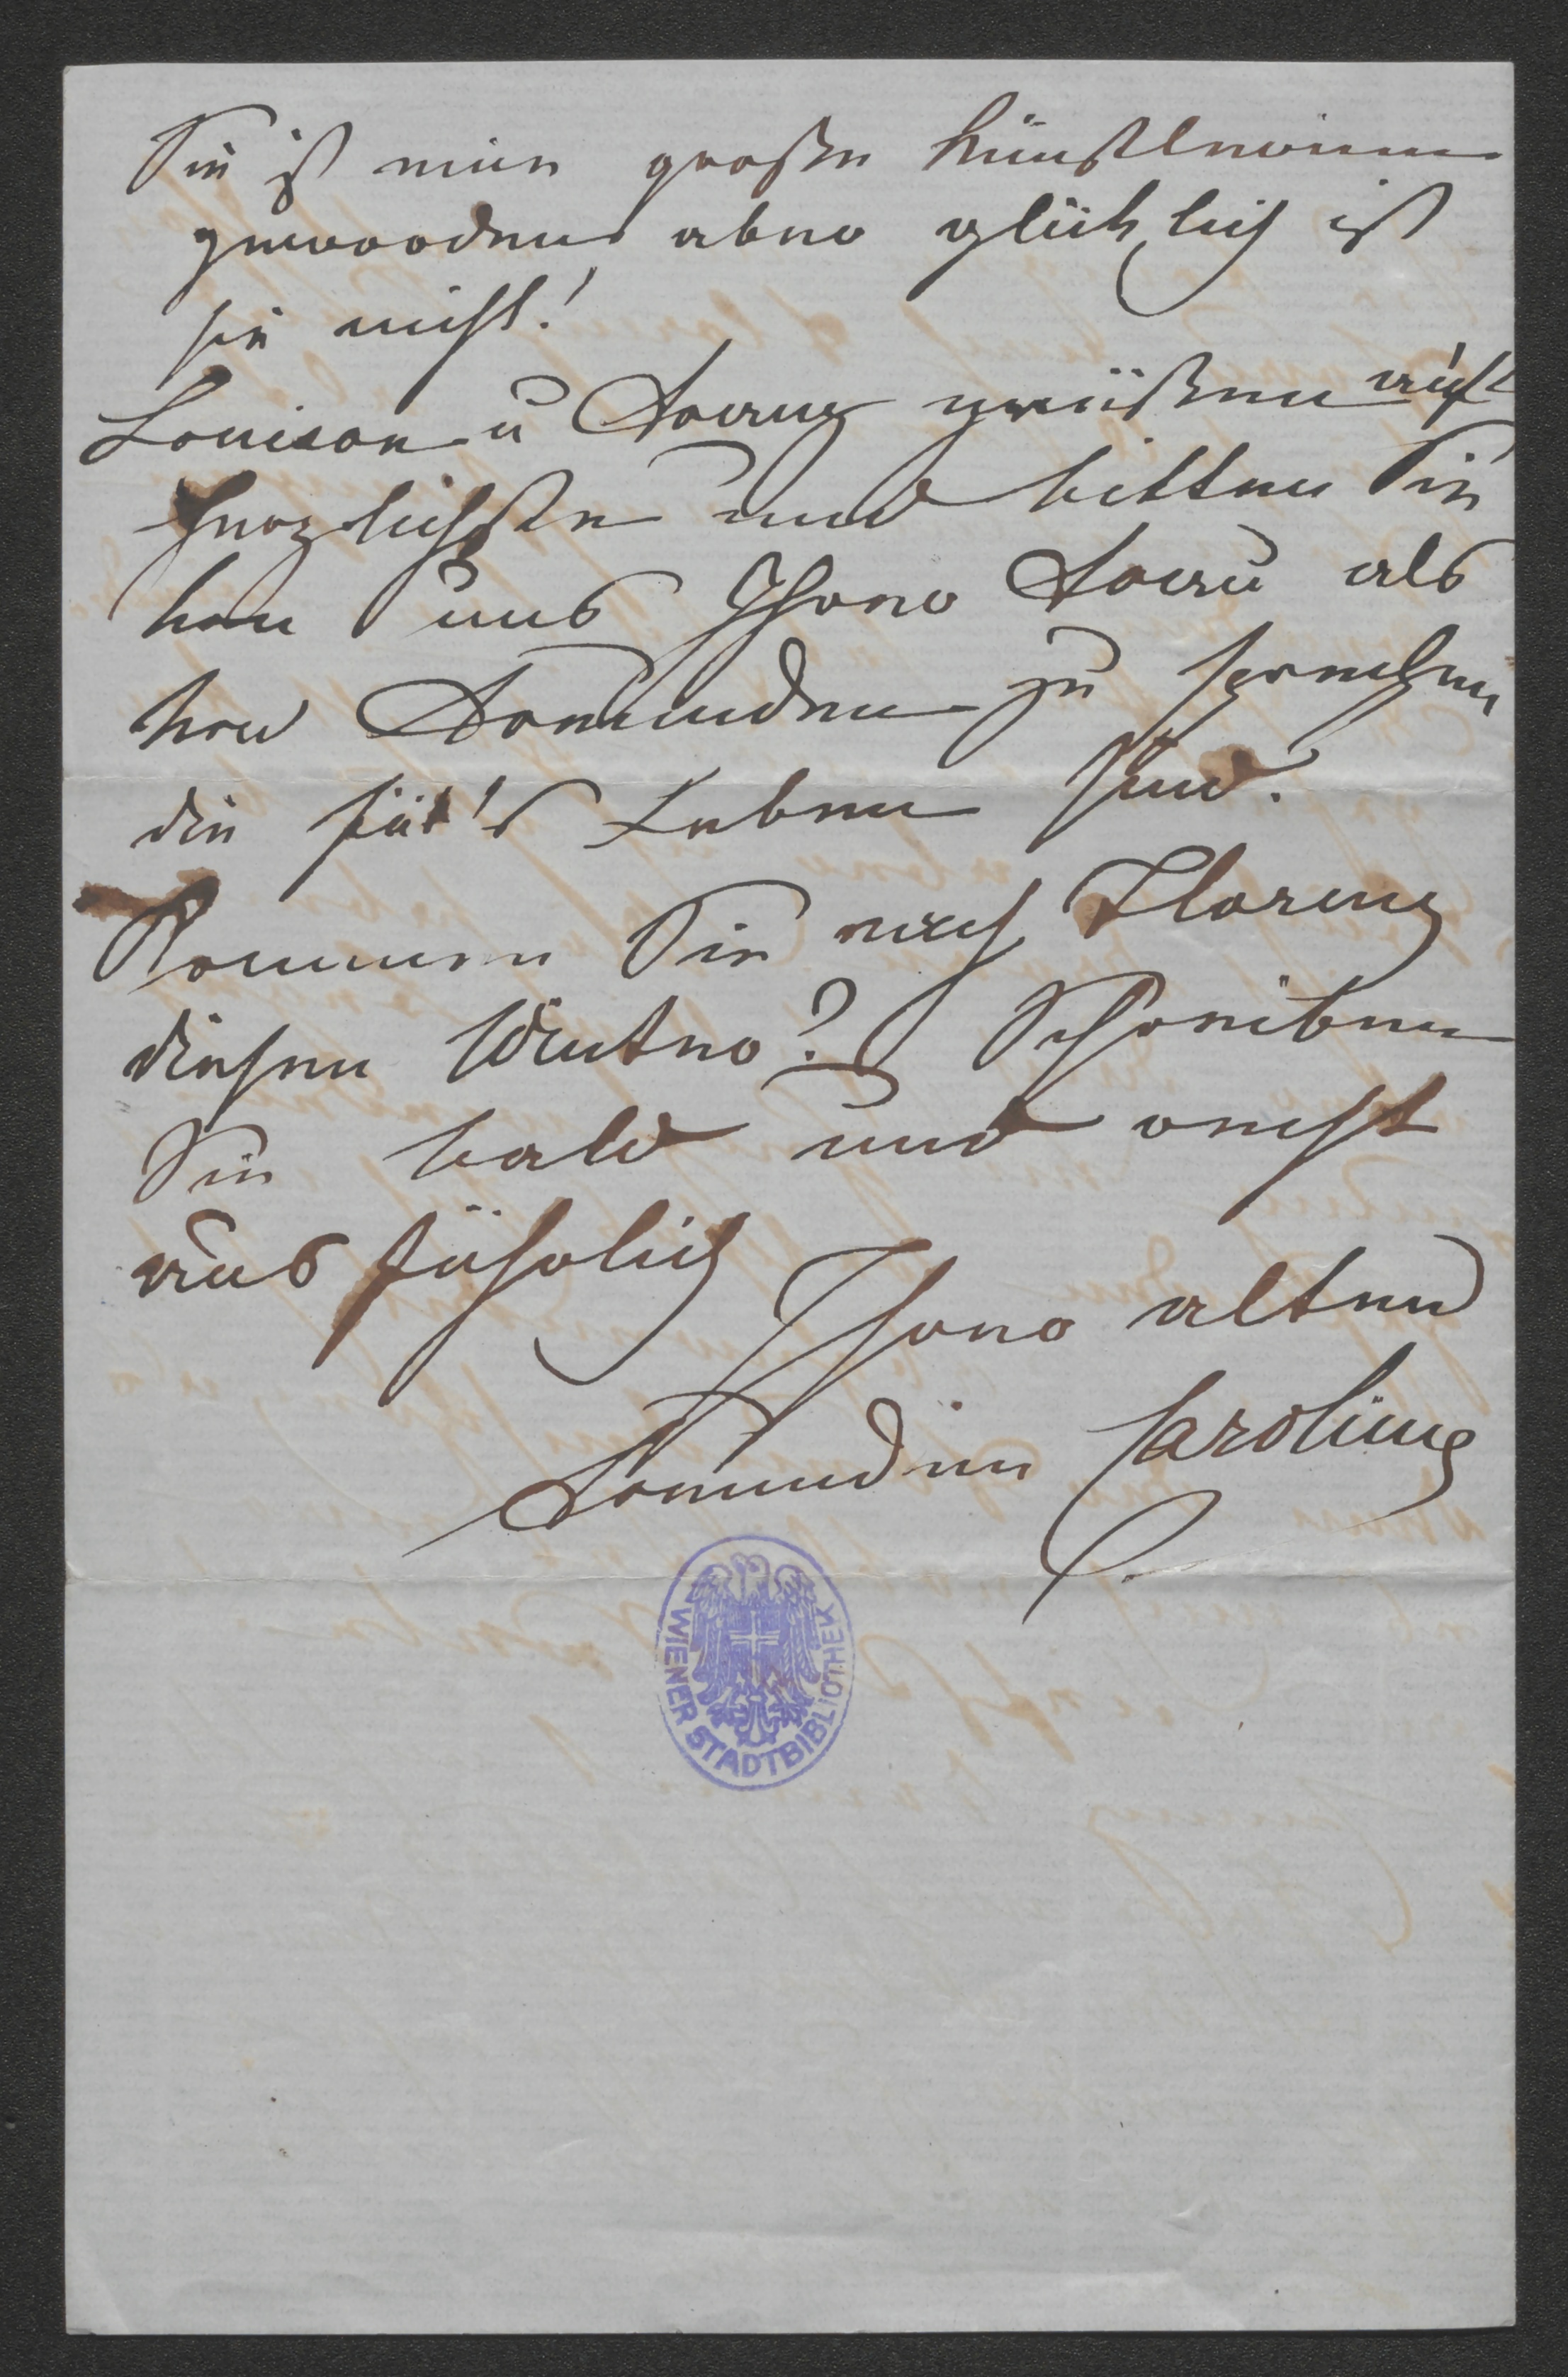 Sie ist eine große Künstlerinn
geworden aber glücklich ist
sie nicht!
Louison u Franz grüßen auf's
herzlichste und bitten Sie
uns Ihrer Frau als
Freunden zu
die für's Leben sind.
Kommen Sie nach Florenz
diesen Winter? Schreiben
Sie bald und recht
ausführlich
Ihrer alten
Freundin Caroline
WIENER STADTBIBLIOTHEK